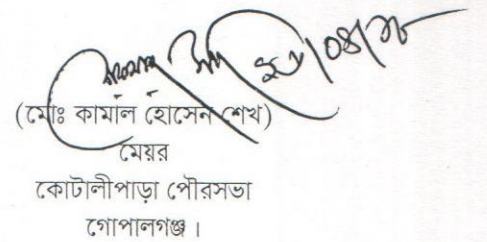 (মোঃ কামাল হোসেন শেখ)
মেয়র
কোটালীপাড়া পৌরসভা
গোপালগঞ্জ ।